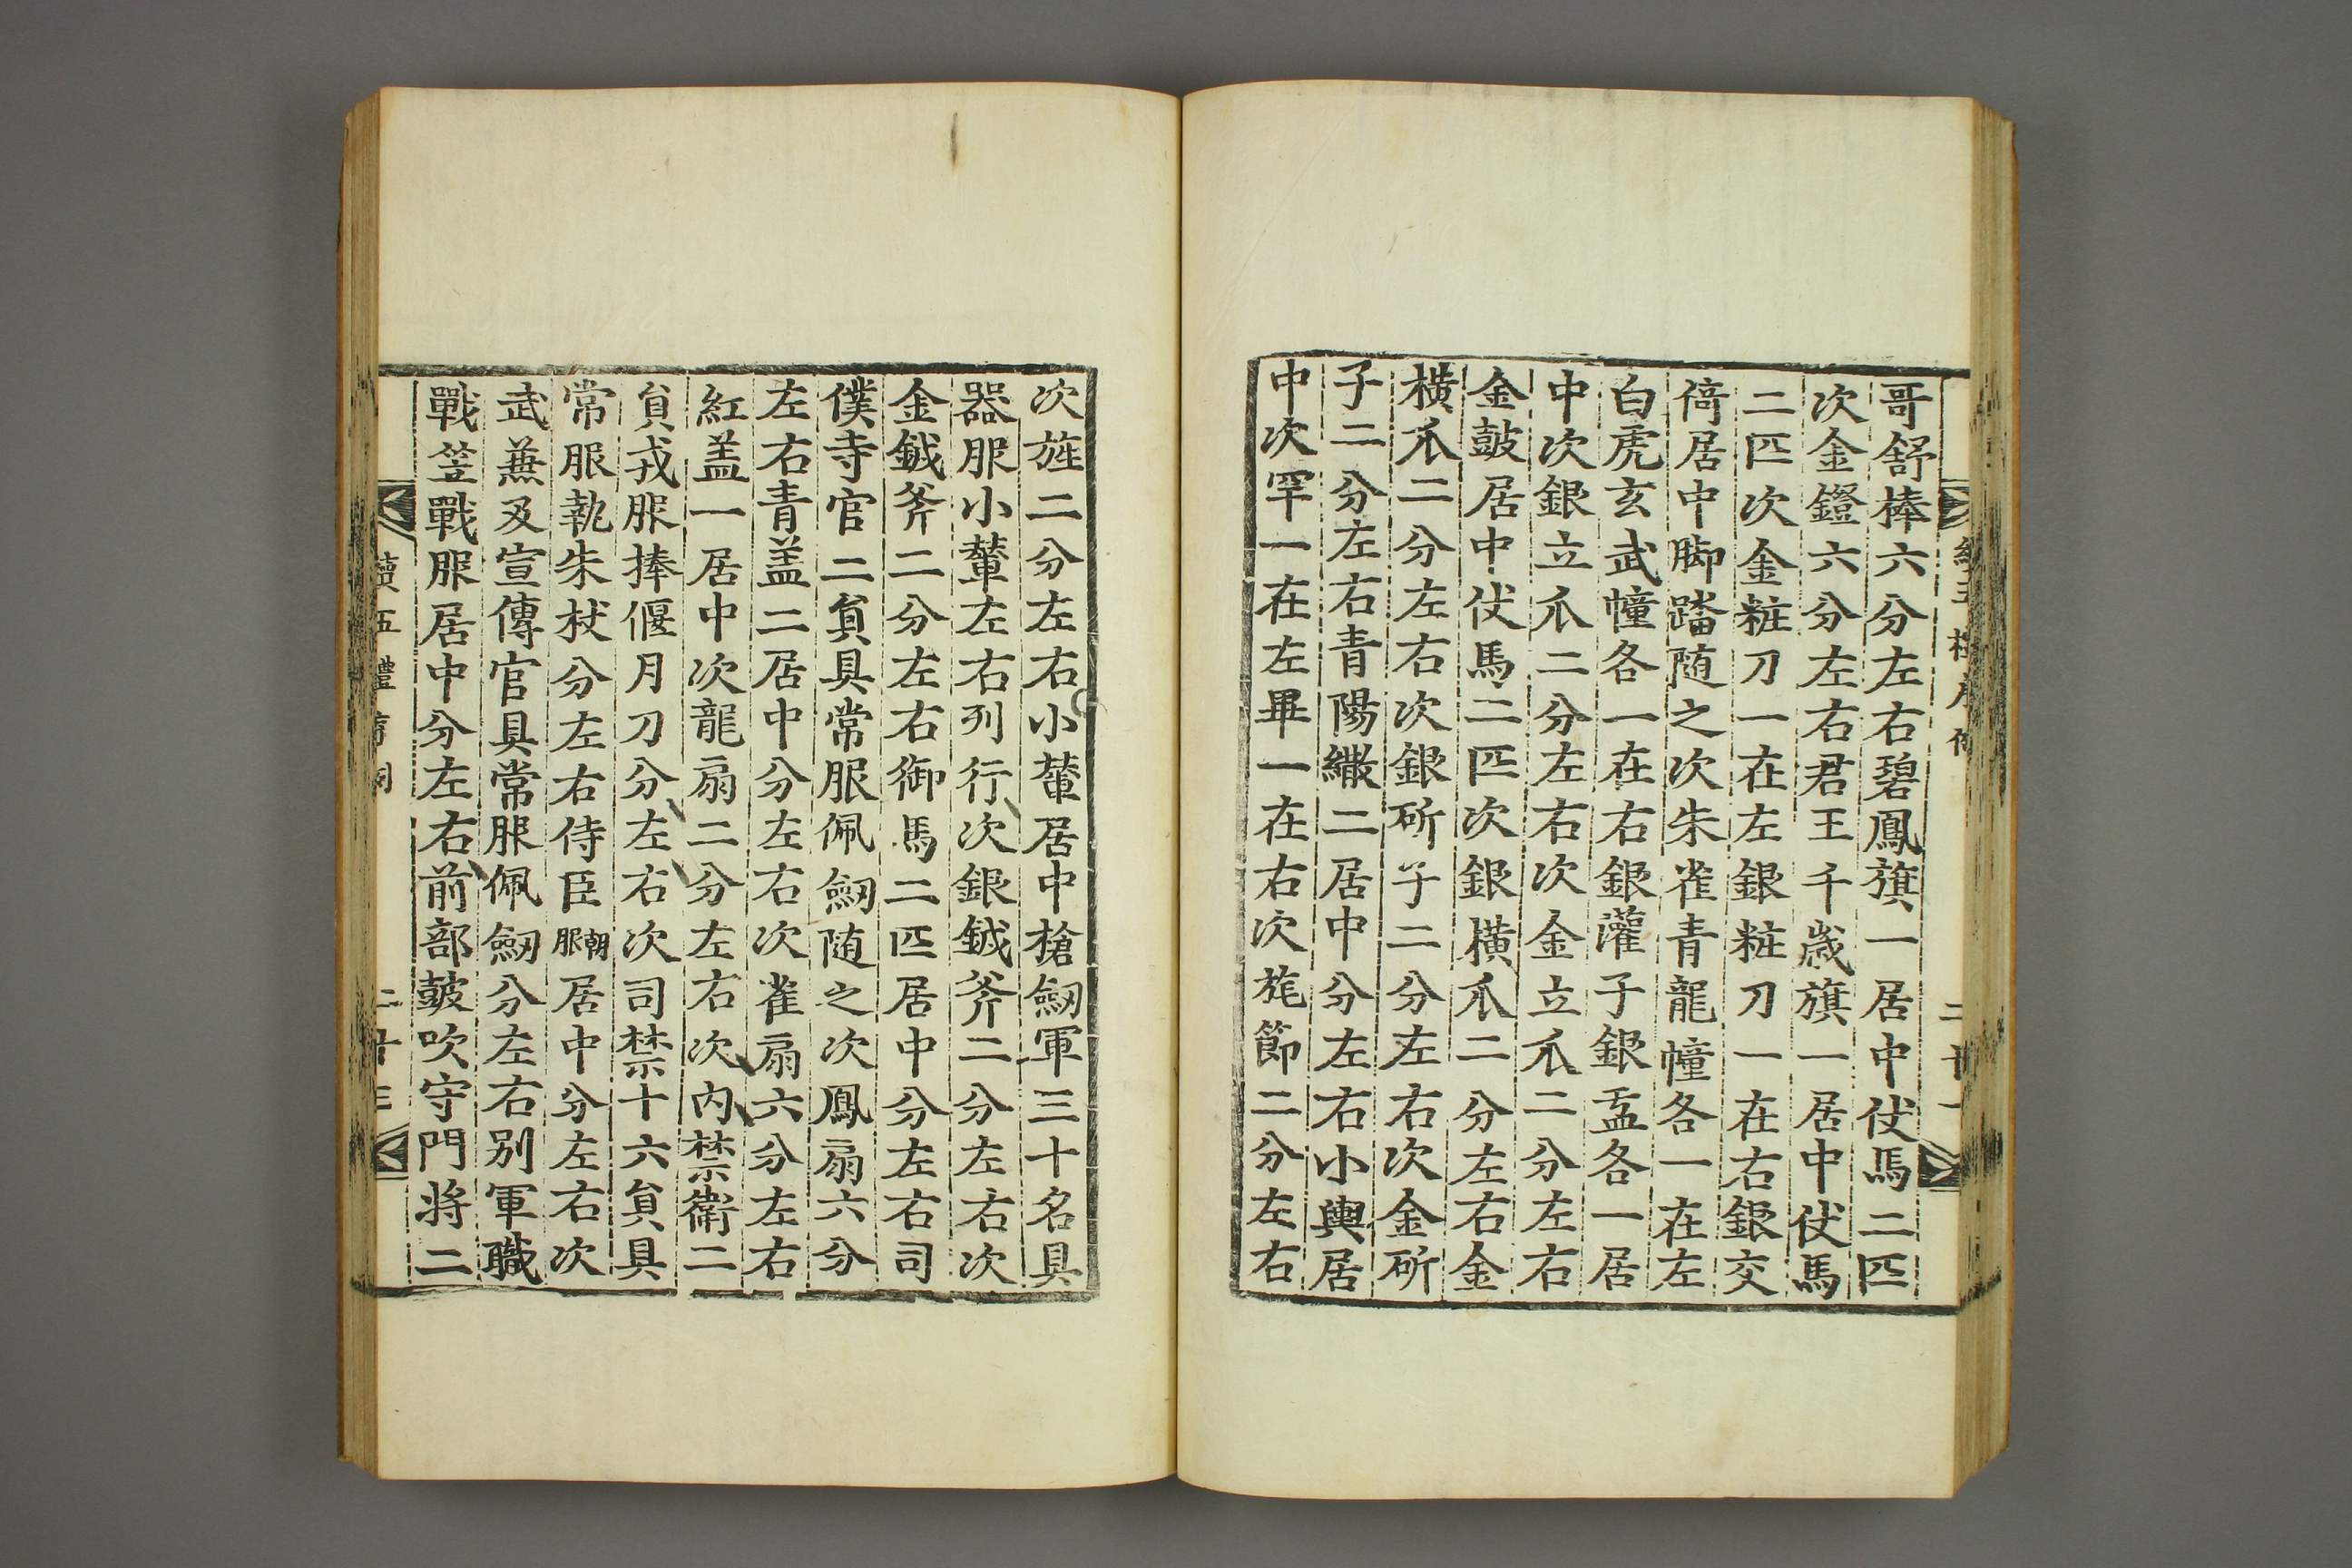 哥舒捧六分左右碧鳳旗一居中仗馬二匹
次金鐙六分左右君王千歲旗一居中仗馬
二匹次金粧刀一在左銀粧刀一在右銀交
倚居中脚踏随之次朱雀青龍幢各一在左
白虎玄武幢各一在右銀灌子銀盂各一居
中次銀立爪二分左右次金立爪二分左右
金鼓居中仗馬二匹次銀橫爪二分左右金
橫爪二分左右次銀斫子二分左右次金斫
子二分左右青陽繖二居中分左右小輿居
中次罕一在左畢一在右次旄節二分左右
次旌二分左右小輦居中槍劒軍三十名具
器服小輦左右列行次銀鉞斧二分左右次
金鉞斧二分左右御馬二匹居中分左右司
僕寺官二貟具常服佩劒随之次鳳扇六分
左右青盖二居中分左右次雀扇六分左右
紅盖一居中次龍扇二分左右次內禁衛二
貟戎服捧偃月刀分左右次司禁十六貟具
常服執朱杖分左右侍臣朝服居中分左右次
武兼及宣傳官具常服佩劒分左右别軍職
戰笠戰服居中分左右前部鼓吹守門將二